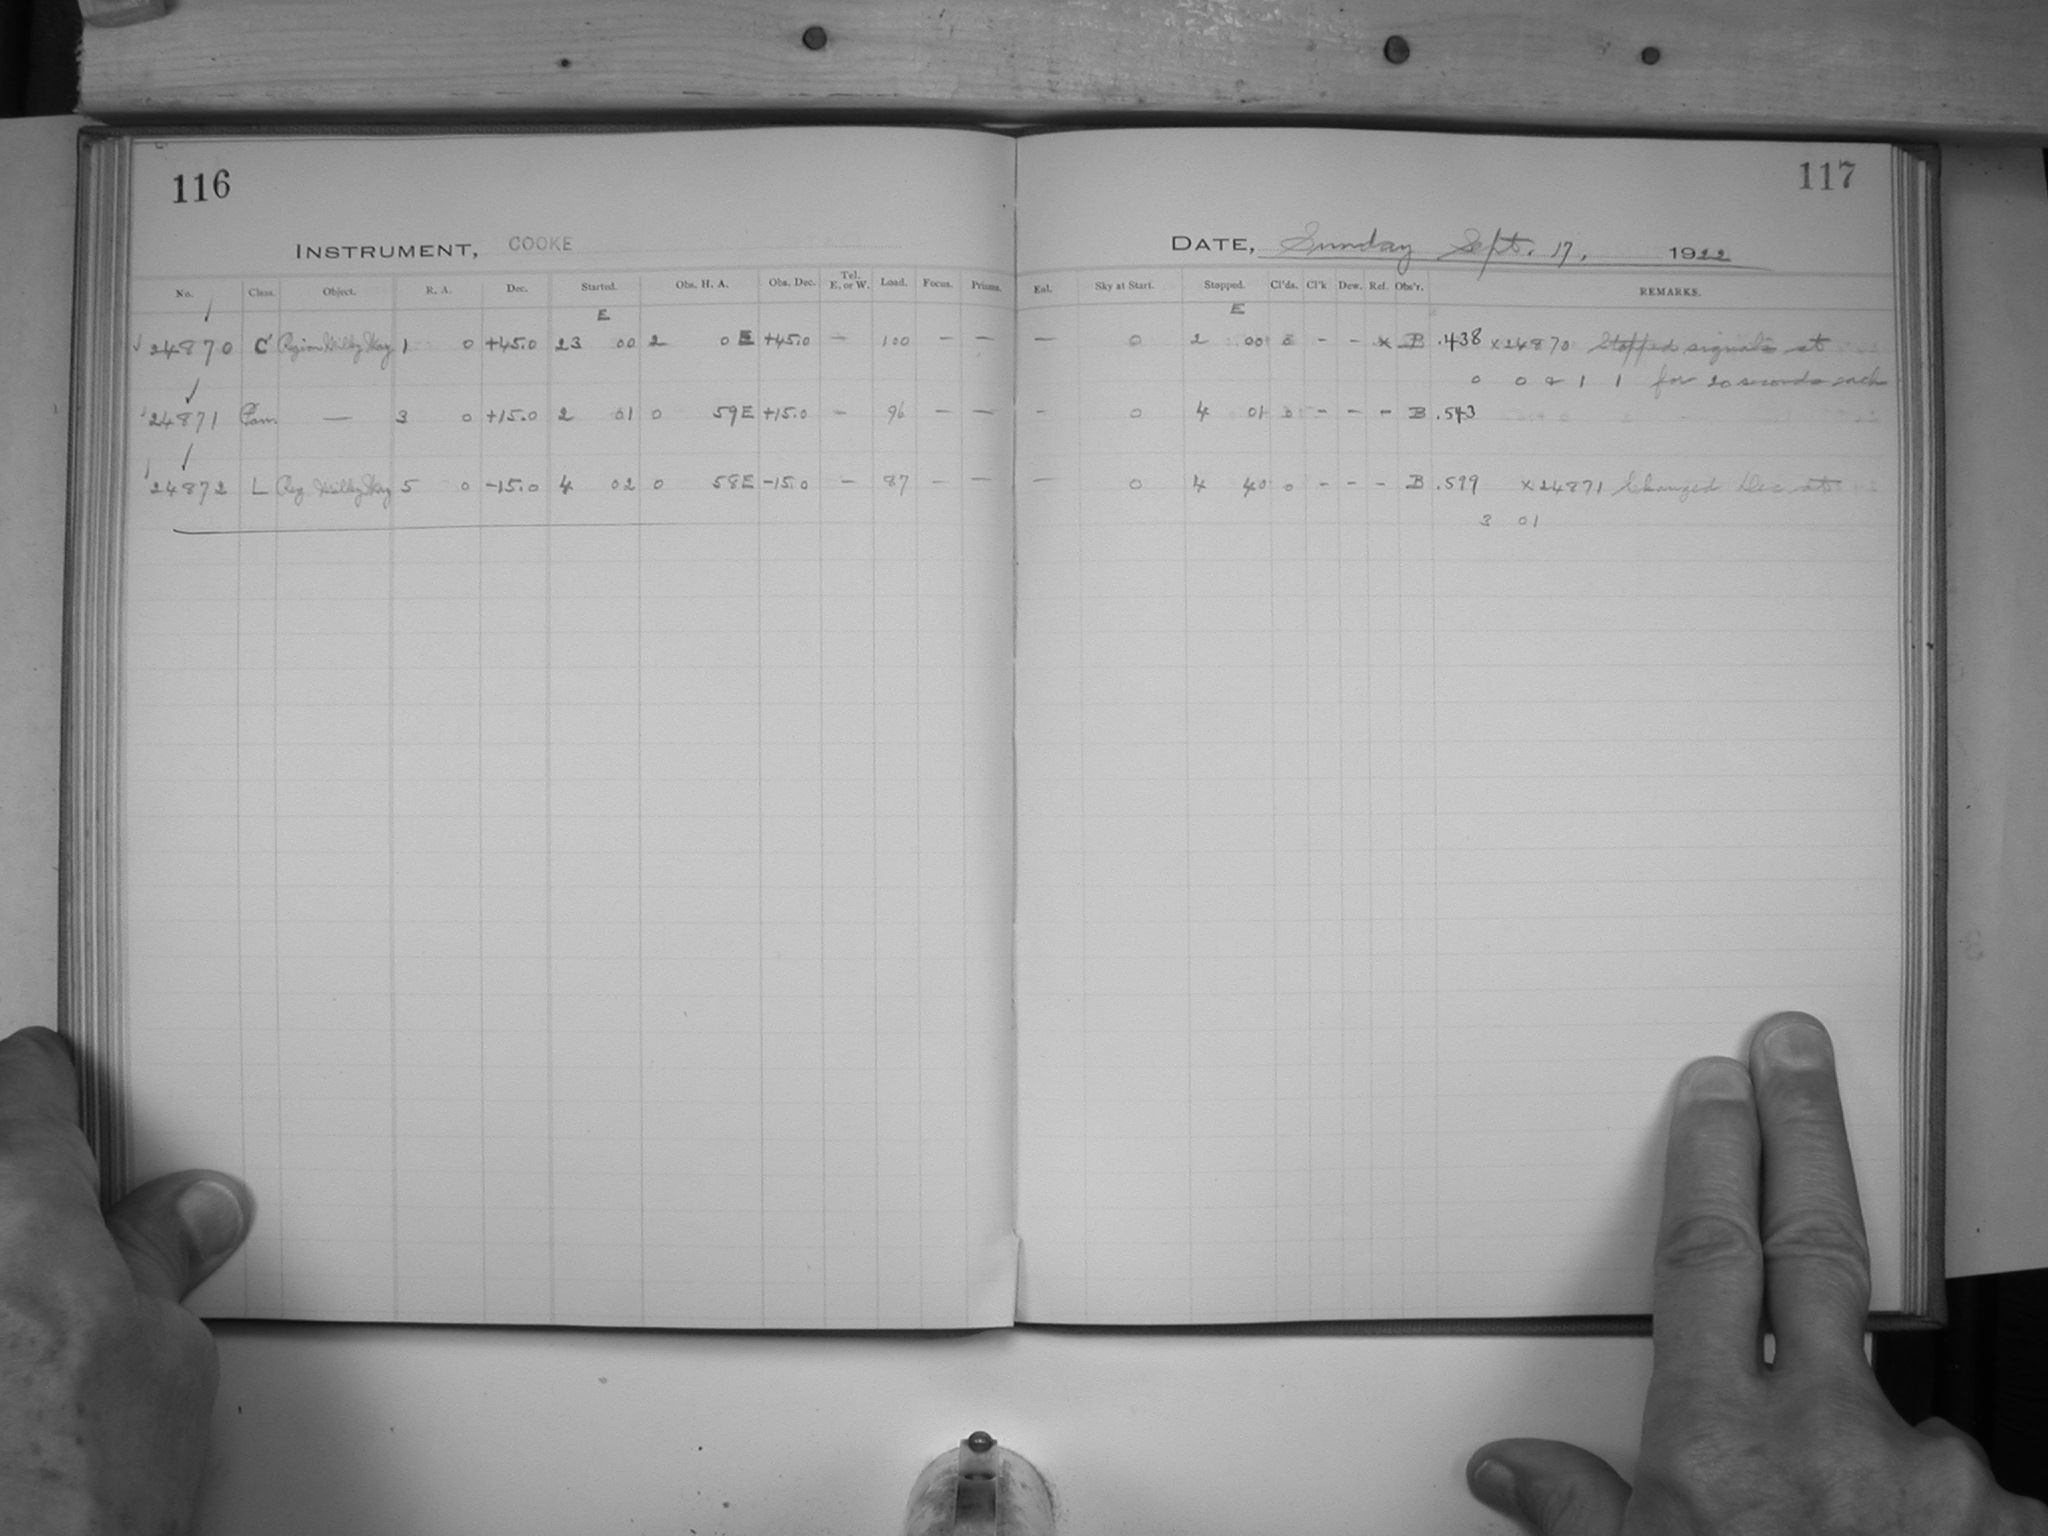 116
INSTRUMENT, COOKE
No. Class. Object. R. A. Dec. Started. Obs. H. A. Obs. Dec. Tel. E. or W. Load. Focus. Prisms.
E
24870 C Region Milky Way 1 0 +45.0 23 00 2 0 E +45.0 — 100 — —
24871 Cam. — 3 0 +15.0 2 01 0 59E +15.0 — 96 — —
24872 L Reg Milky Way 5 0 -15.0 4 02 0 58E -15.0 — 87 — —
117
DATE, Sunday Sept. 17, 1922
Sky at Start. Stopped. Cl'ds. Cl'k Dew. Ref. Obs'r. REMARKS.
E
— 0 2 00 0 - - x B .438 x24870 Stopped signals at
0 0 & 1 1 for 20 seconds each
- 0 4 01 0 - - - B .543
— 0 4 40 0 - - - B .599 x24871 Changed Dec at
3 01